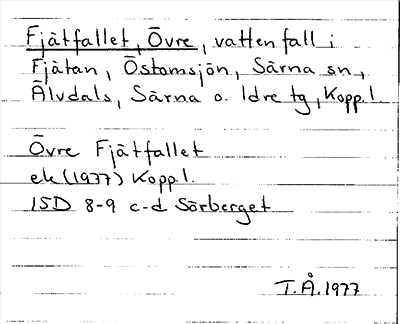 Fjätfallet, Övre, vattenfall i
Fjätan, Östomsjön, Särna sn,
Älvdals, Särna o. Idre tg, Kopp.l
Övre Fjätfallet
ek (1977) Kopp l.
15D 8-9 c-d Sörberget
T.Å.1977